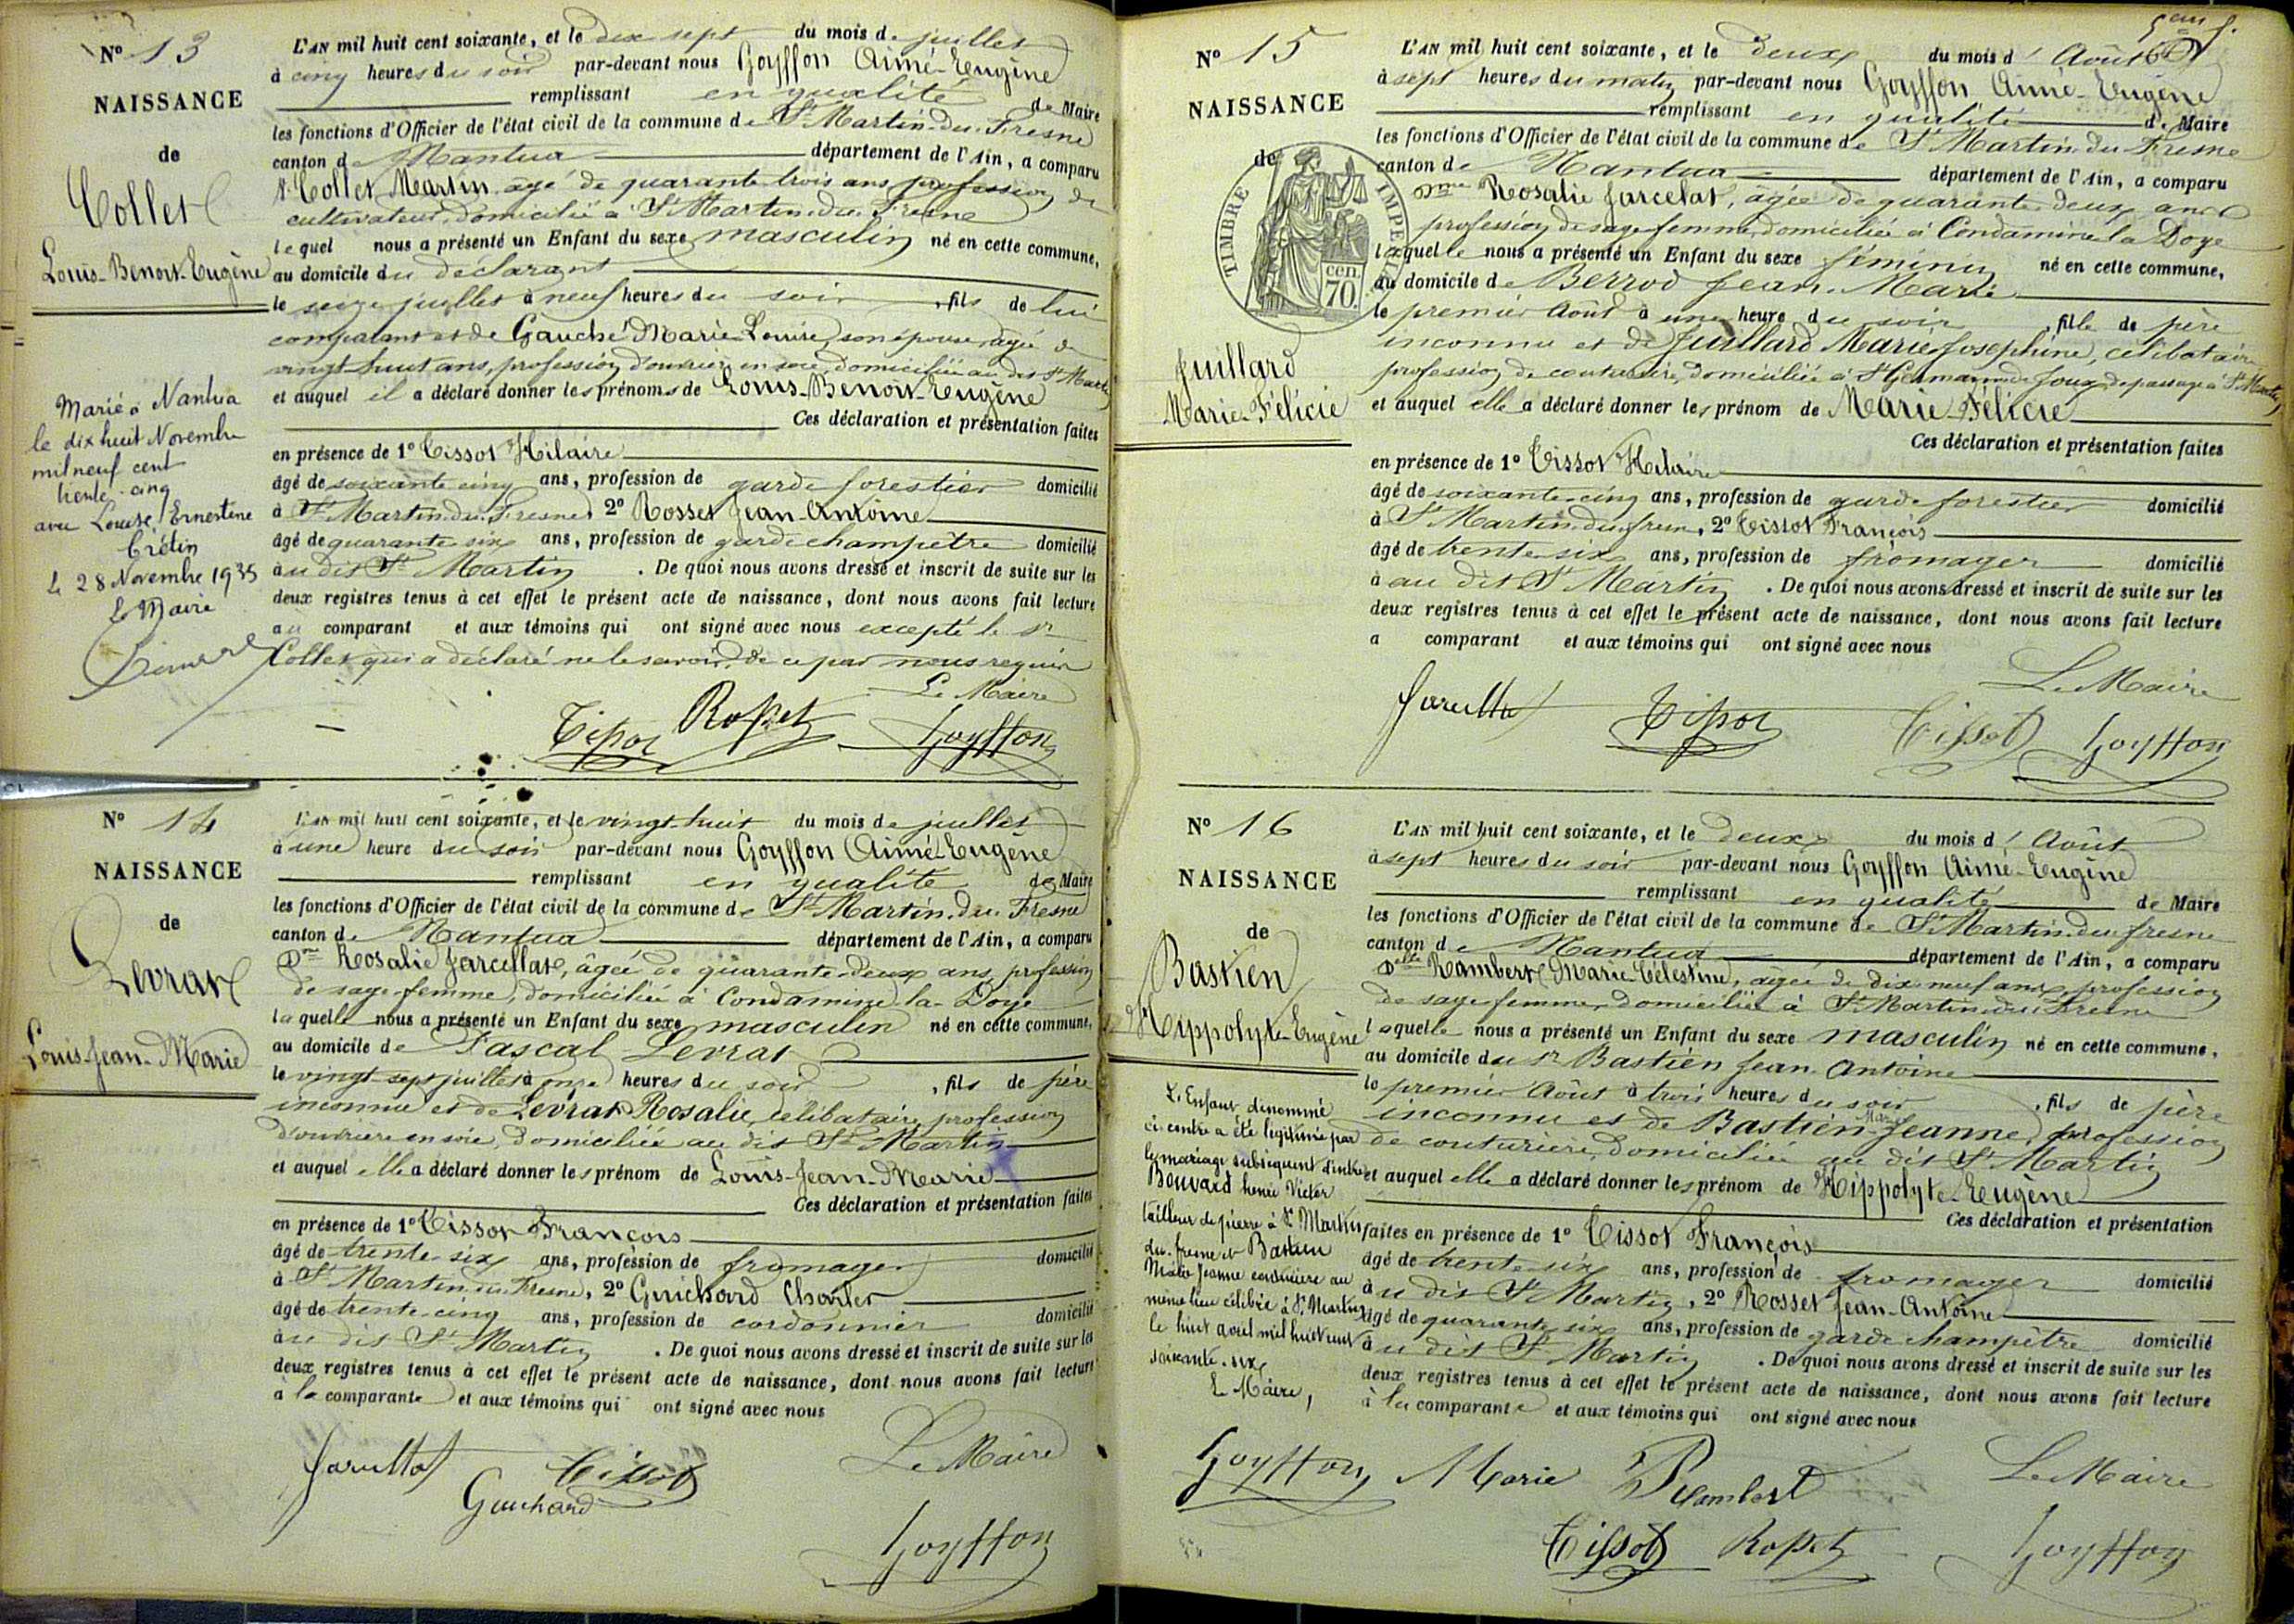 N° 13
NAISSANCE
de
Collet
Louis-Benoit-Eugène
Marié à Nantua
le dix huit Novembre
mil neuf cent
trente-cinq
avec Louise Ernestine
Crétin
le 28 Novembre 1935
Le Maire
L'AN mil huit cent soixante, et le dix sept du mois de juillet
à cinq heures du soir par-devant nous Goyffon Aimé-Eugène
remplissant en qualité de Maire
les fonctions d'Officier de l'état civil de la commune de St Martin-du-Fresne
canton de Nantua département de l'Ain, a comparu
Sr Collet Martin âgé de quarante trois ans, profession de
cultivateur, domicilié à St Martin-du-Fresne
lequel nous a présenté un Enfant du sexe masculin né en cette commune,
au domicile du déclarant
le seize juillet à neuf heures du soir, fils de lui
comparant et de Gauché Marie-Louise, son épouse, âgée de
vingt huit ans, profession d'ouvrière en soie, domiciliée au dit St Martin
et auquel il a déclaré donner les prénoms de Louis-Benoit-Eugène
Ces déclaration et présentation faites
en présence de 1° Tissot Hilaire
âgé de soixante cinq ans, profession de garde forestier domicilié
à St Martin-du-Fresne, 2° Rosset Jean-Antoine
âgé de quarante six ans, profession de garde champêtre domicilié
au dit St Martin. De quoi nous avons dressé et inscrit de suite sur les
deux registres tenus à cet effet le présent acte de naissance, dont nous avons fait lecture
au comparant et aux témoins qui ont signé avec nous excepté le Sr
Collet qui a déclaré ne le savoir, de ce par nous requis
Le Maire
Tissot Rosset Goyffon
N° 14
NAISSANCE
de
Levrat
Louis-Jean-Marie
L'AN mil huit cent soixante, et le vingt-huit du mois de juillet
à une heure du soir par-devant nous Goyffon Aimé-Eugène
remplissant en qualité de Maire
les fonctions d'Officier de l'état civil de la commune de St Martin-du-Fresne
canton de Nantua département de l'Ain, a comparu
Dme Rosalie Jarcellat, âgée de quarante deux ans, profession
de sage-femme, domiciliée à Condamine la Doye
laquelle nous a présenté un Enfant du sexe masculin né en cette commune,
au domicile de Pascal Levrat
le vingt-sept juillet à onze heures du soir, fils de père
inconnu et de Levrat Rosalie, célibataire, profession
d'ouvrière en soie, domiciliée au dit St Martin
et auquel elle a déclaré donner les prénom de Louis-Jean-Marie
Ces déclaration et présentation faites
en présence de 1° Tissot François
âgé de trente six ans, profession de fromager domicilié
à St Martin-du-Fresne, 2° Guichard Charles
âgé de trente-cinq ans, profession de cordonnier domicilié
au dit St Martin. De quoi nous avons dressé et inscrit de suite sur les
deux registres tenus à cet effet le présent acte de naissance, dont nous avons fait lecture
à la comparante et aux témoins qui ont signé avec nous
Le Maire
Jarcellat Tissot
Guichard
Goyffon
N° 15
NAISSANCE
de
TIMBRE IMPERIAL
70 cen.
Juillard
Marie-Félicie
L'AN mil huit cent soixante, et le deux du mois d'Août
à sept heures du matin par-devant nous Goyffon Aimé-Eugène
remplissant en qualité de Maire
les fonctions d'Officier de l'état civil de la commune de St Martin-du-Fresne
canton de Nantua département de l'Ain, a comparu
Dme Rosalie Jarcelat, âgée de quarante deux ans
profession de sage-femme, domiciliée à Condamine la Doye
laquelle nous a présenté un Enfant du sexe féminin né en cette commune,
au domicile de Berrod Jean-Marie
le premier Août à une heure du soir, fille de père
inconnu et de Juillard Marie Joséphine, célibataire
profession de couturière, domiciliée à St Germain de Joux, de passage à St Martin,
et auquel elle a déclaré donner les prénom de Marie Félicie
Ces déclaration et présentation faites
en présence de 1° Tissot Hilaire
âgé de soixante-cinq ans, profession de garde forestier domicilié
à St Martin-du-fresne, 2° Tissot François
âgé de trente six ans, profession de fromager domicilié
à au dit St Martin. De quoi nous avons dressé et inscrit de suite sur les
deux registres tenus à cet effet le présent acte de naissance, dont nous avons fait lecture
a comparant et aux témoins qui ont signé avec nous
Le Maire
Jarcellat Tissot Tissot Goyffon
N° 16
NAISSANCE
de
Bastien
Hippolyte-Eugène
L'Enfant dénommé
ci-contre a été légitimé par
le mariage subséquent d'entre
Bouvard henri Victor
tailleur de pierre à St Martin
du-fresne et Bastien
Marie Jeanne couturière au
même lieu célébré à St Martin
le huit avril mil huit cent
soixante-six
Le Maire,
Goyffon
L'AN mil huit cent soixante, et le deux du mois d'Août
à sept heures du soir par-devant nous Goyffon Aimé-Eugène
remplissant en qualité de Maire
les fonctions d'Officier de l'état civil de la commune de St Martin-du-fresne
canton de Nantua département de l'Ain, a comparu
Delle Rambert Marie Célestine, âgée de dix neuf ans, profession
de sage femme, domiciliée à St Martin-du-Fresne
laquelle nous a présenté un Enfant du sexe masculin né en cette commune,
au domicile du Sr Bastien Jean-Antoine
le premier Août à trois heures du soir, fils de père
inconnu et de Bastien Marie Jeanne, profession
de couturière, domiciliée au dit St Martin
et auquel elle a déclaré donner les prénom de Hippolyte-Eugène
Ces déclaration et présentation
faites en présence de 1° Tissot François
âgé de trente six ans, profession de fromager domicilié
au dit St Martin, 2° Rosset Jean-Antoine
âgé de quarante six ans, profession de garde champêtre domicilié
au dit St Martin. De quoi nous avons dressé et inscrit de suite sur les
deux registres tenus à cet effet le présent acte de naissance, dont nous avons fait lecture
à la comparante et aux témoins qui ont signé avec nous
Marie Rambert Le Maire
Tissot Rosset Goyffon